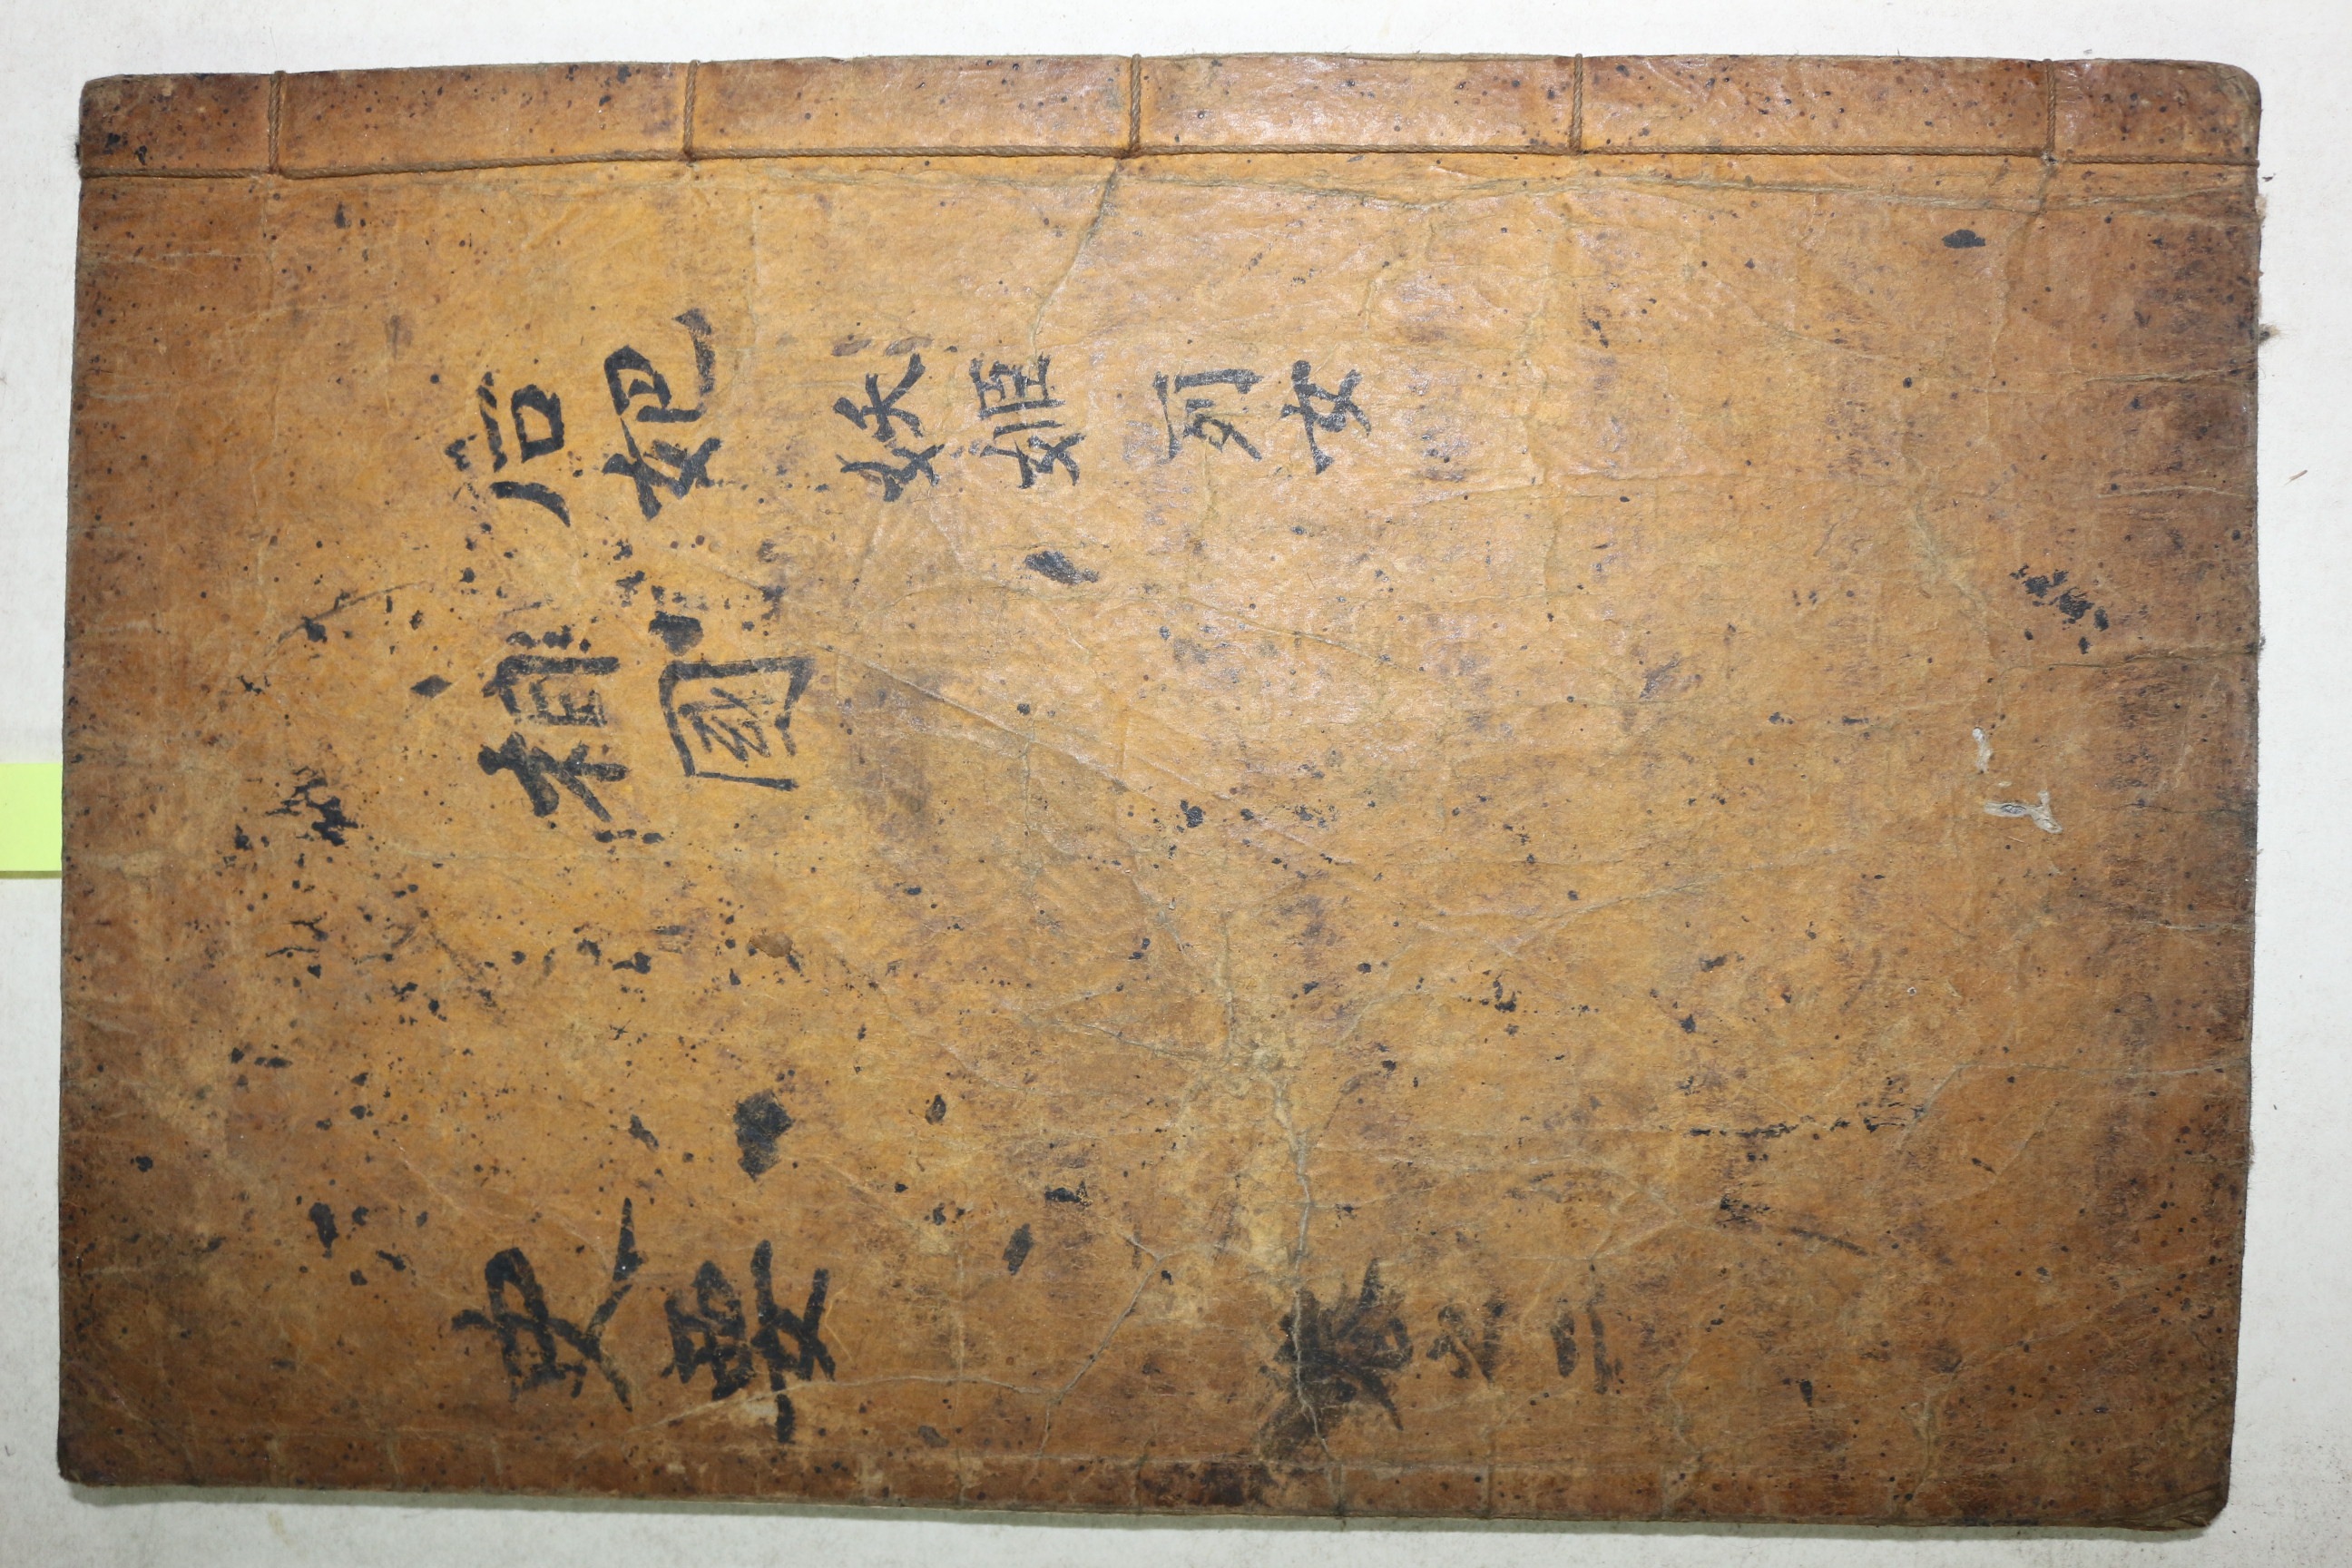 后妃 妖姬 列女
相國
史要 卷之二